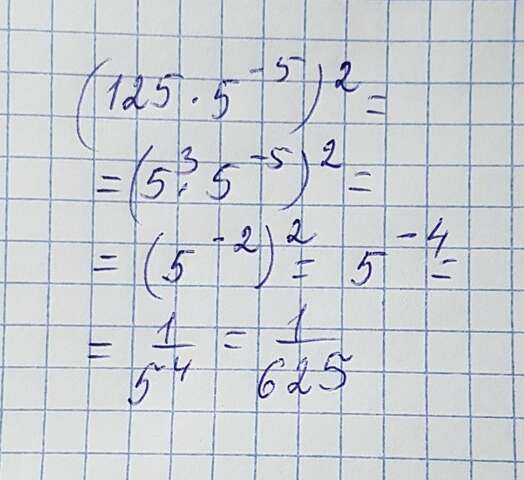 (125 · 5⁻⁵)² =
= (5³ · 5⁻⁵)² =
= (5⁻²)² = 5⁻⁴ =
= 1/5⁴ = 1/625